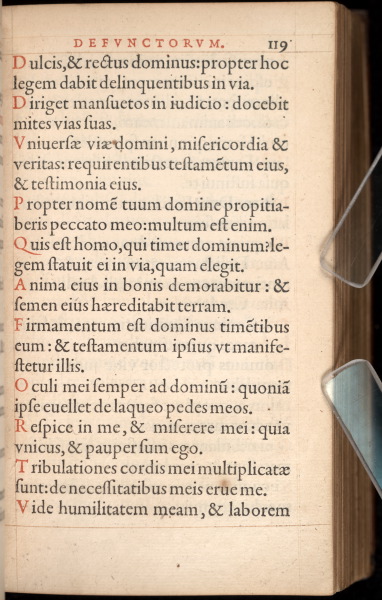 DEFVNCTORVM. 119
Dulcis, & rectus dominus: propter hoc
legem dabit delinquentibus in via.
Diriget mansuetos in iudicio: docebit
mites vias suas.
Vniuersæ viæ domini, misericordia &
veritas: requirentibus testamẽtum eius,
& testimonia eius.
Propter nomẽ tuum domine propitia-
beris peccato meo: multum est enim.
Quis est homo, qui timet dominum: le-
gem statuit ei in via, quam elegit.
Anima eius in bonis demorabitur: &
semen eius hæreditabit terram.
Firmamentum est dominus timẽtibus
eum: & testamentum ipsius vt manife-
stetur illis.
Oculi mei semper ad dominũ: quoniã
ipse euellet de laqueo pedes meos.
Respice in me, & miserere mei: quia
vnicus, & pauper sum ego.
Tribulationes cordis mei multiplicatæ
sunt: de necessitatibus meis erue me.
Vide humilitatem meam, & laborem